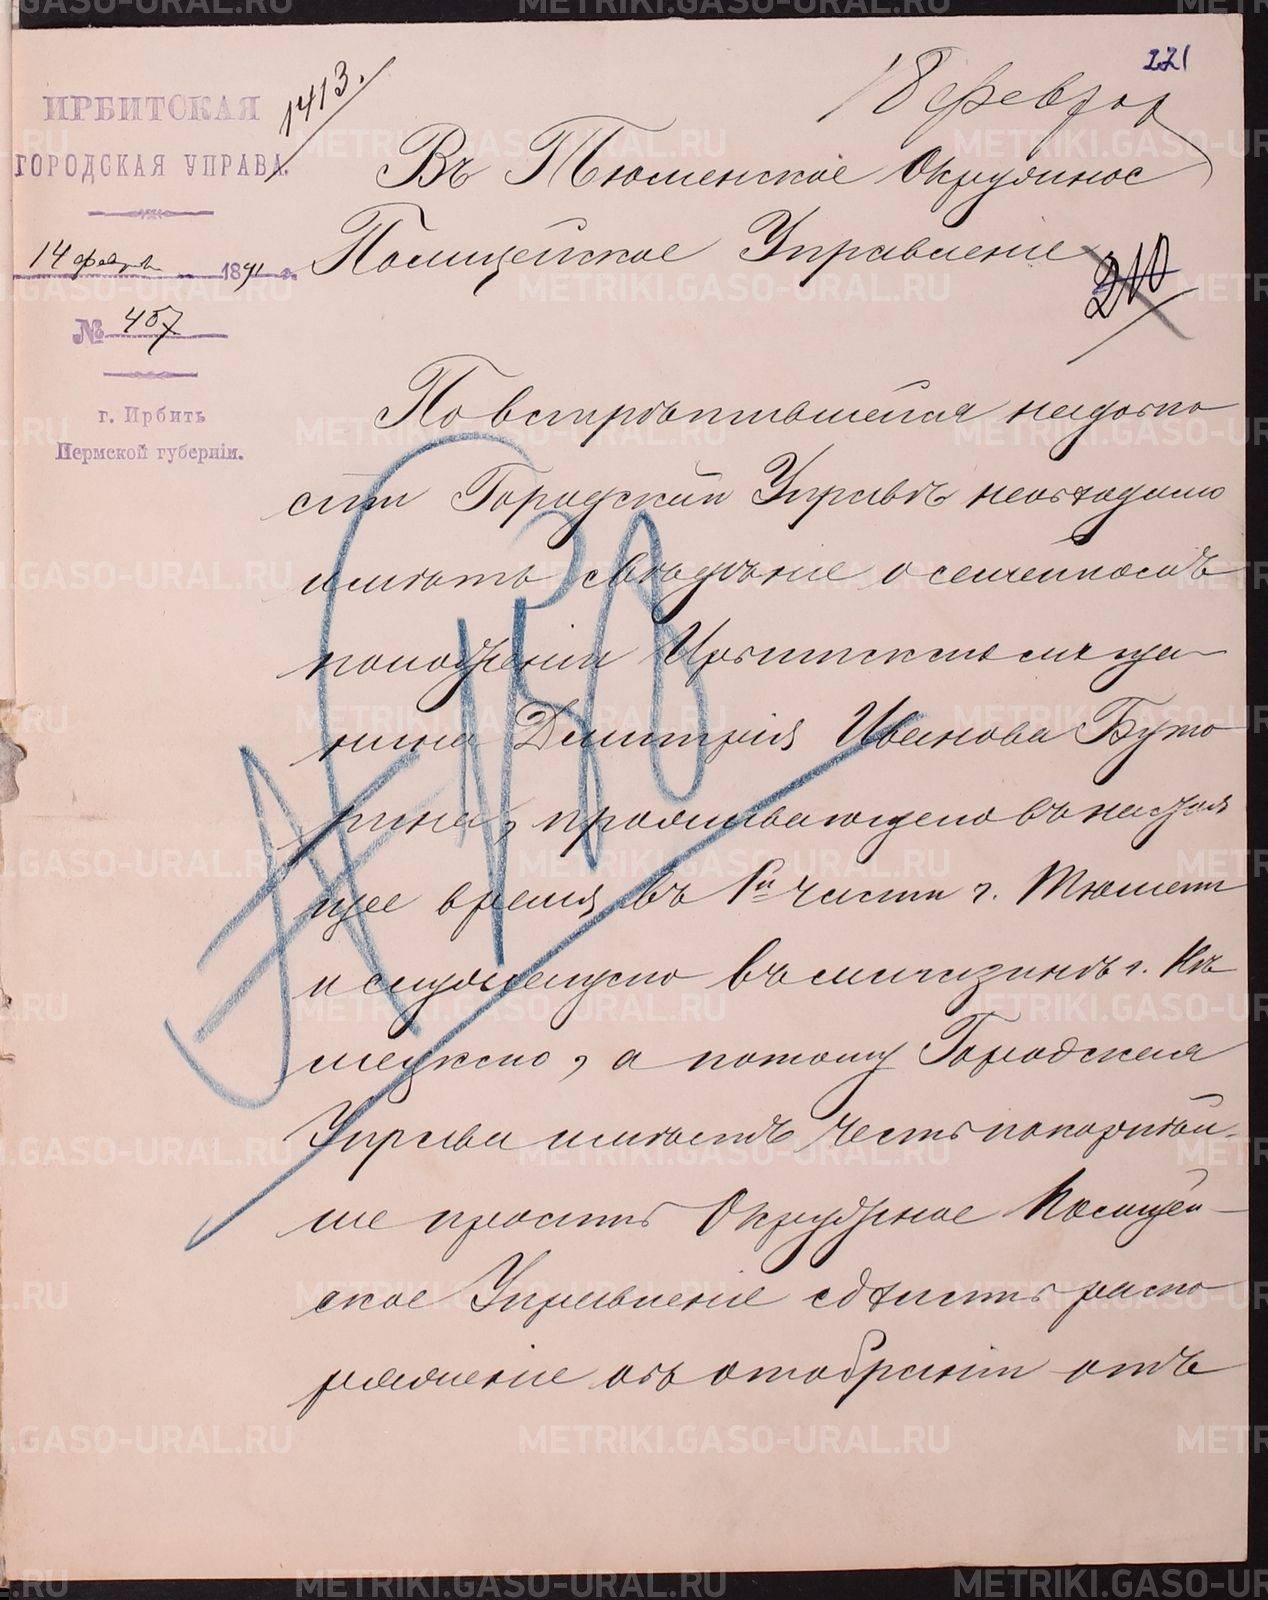 221
18 февраля
1413.
ИРБИТСКАЯ
ГОРОДСКАЯ УПРАВА.
14 февраля 1891 г.
№ 407
г. Ирбить
Пермской губерніи.
Въ Тюменское Окружное
Полицейское Управленіе
210
По встрѣтившейся надобно
сти Городской Управѣ необходимо
имѣть свѣдѣніе о семейномъ
положеніи Ирбитскаго мѣща-
нина Дмитрія Иванова Буто
рина, проживающего въ настоя
щее время въ 1й части г. Тюмени
и служащего въ магазинѣ г. Ка
, а потому Городская
Управа имѣетъ честь покорнѣй-
ше просить Окружное Полицей-
ское Управленіе сдѣлать распо
ряженіе объ отобраніи отъ
METRIKI.GASO-URAL.RU